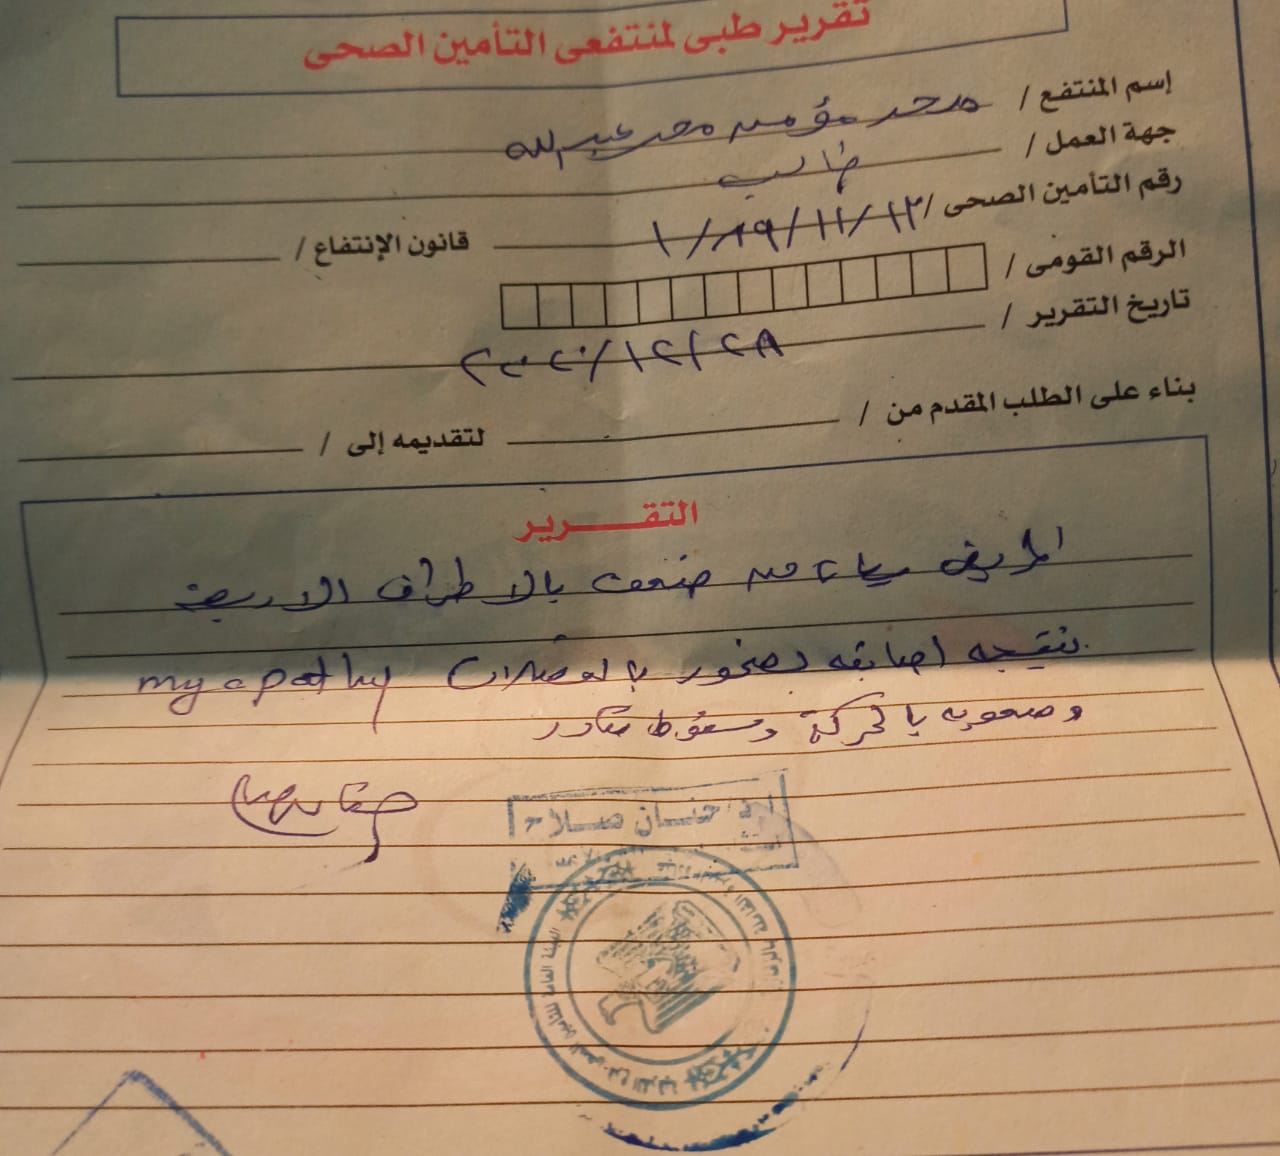 تقرير طبى لمنتفعى التأمين الصحى
إسم المنتفع / محمد مؤمن محمد عبدالله
جهة العمل / طالب
رقم التأمين الصحى / ١٢/١١/٨٩/١ قانون الإنتفاع /
الرقم القومى /
تاريخ التقرير / ٢٨/١٢/٢٠٢٠
بناء على الطلب المقدم من / لتقديمه إلى /
التقـــــرير
المريض يعانى من ضعف بالاطراف الاربعة
نتيجه اصابته بضمور بالعضلات myopathy
وصعوبه بالحركة وسقوط متكرر
أ.د/ حنان صلاح
الهيئة العامة للتأمين الصحى